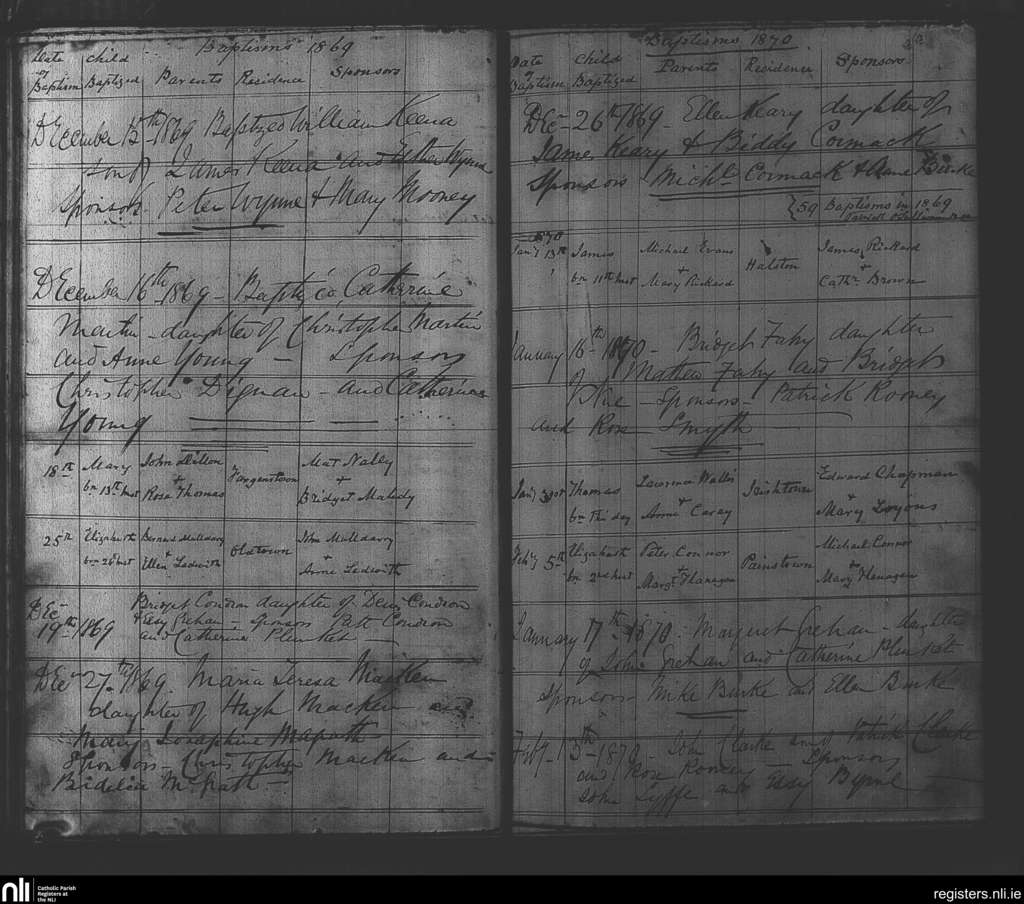 Baptisms 1869
Date of Baptism Child Baptized Parents Residence Sponsors
December 15th 1869 Baptized William Keena
son of James Keena and Esther Wynne
Sponsors Peter Wynne & Mary Mooney
December 16th 1869 - Baptized Catherine
Martin - daughter of Christopher Martin
and Anne Young - Sponsors
Christopher Dignan - and Catherine
Young
18th Mary John Dillon Mat Nally
bn 13th inst Rose Thomas & Bridget Maledy
25th Elizabeth Bernard Mulldarry Oldtown John Mulldarry
bn inst Ellen Ledwith & Anne Ledwith
Dec 19th 1869 Bridget Condron daughter of Denis Condron
& Essy Grehan - Sponsors Patt Condron
and Catherine Plunket
Dec 27th 1869. Maria Teresa Macken
daughter of Hugh Macken and
Mary Josephine
Sponsors - Christopher Macken and
Bidelia McGrath
Baptisms 1870
Date of Baptism Child Baptized Parents Residence Sponsors
Dec 26th 1869 - Ellen Keary daughter of
James Keary & Biddy Cormack
Sponsors Michl. Cormack & Anne Burke
59 Baptisms in 1869
1870
Jany 13th James Michael Evans Halston James Rickard
bn 11th inst & Mary Rickard & Cathn. Brown
January 16th 1870 - Bridget Fahy daughter
of Mathew Fahy and Bridget
- Sponsors - Patrick Rooney
and Rose Smyth
Jany Thomas Lawrence Wallis Irishtown Edward Chapman
bn this day Anne & Carey & Mary Lyons
Feby 5th Elizabeth Peter Connor Painstown Michael Connor
bn 2nd inst Margt. Flanagan & Mary Flanagan
January 17th 1870. Margaret Grehan - daughter
of John Grehan and Catherine Plunket
Sponsors - Mike Burke and Ellen Burke
Feby 13th 1870 - John Clarke son of Patrick Clarke
and Rose Rooney - Sponsors
John and Essy Byrne
nli
Catholic Parish
Registers at
the NLI
registers.nli.ie